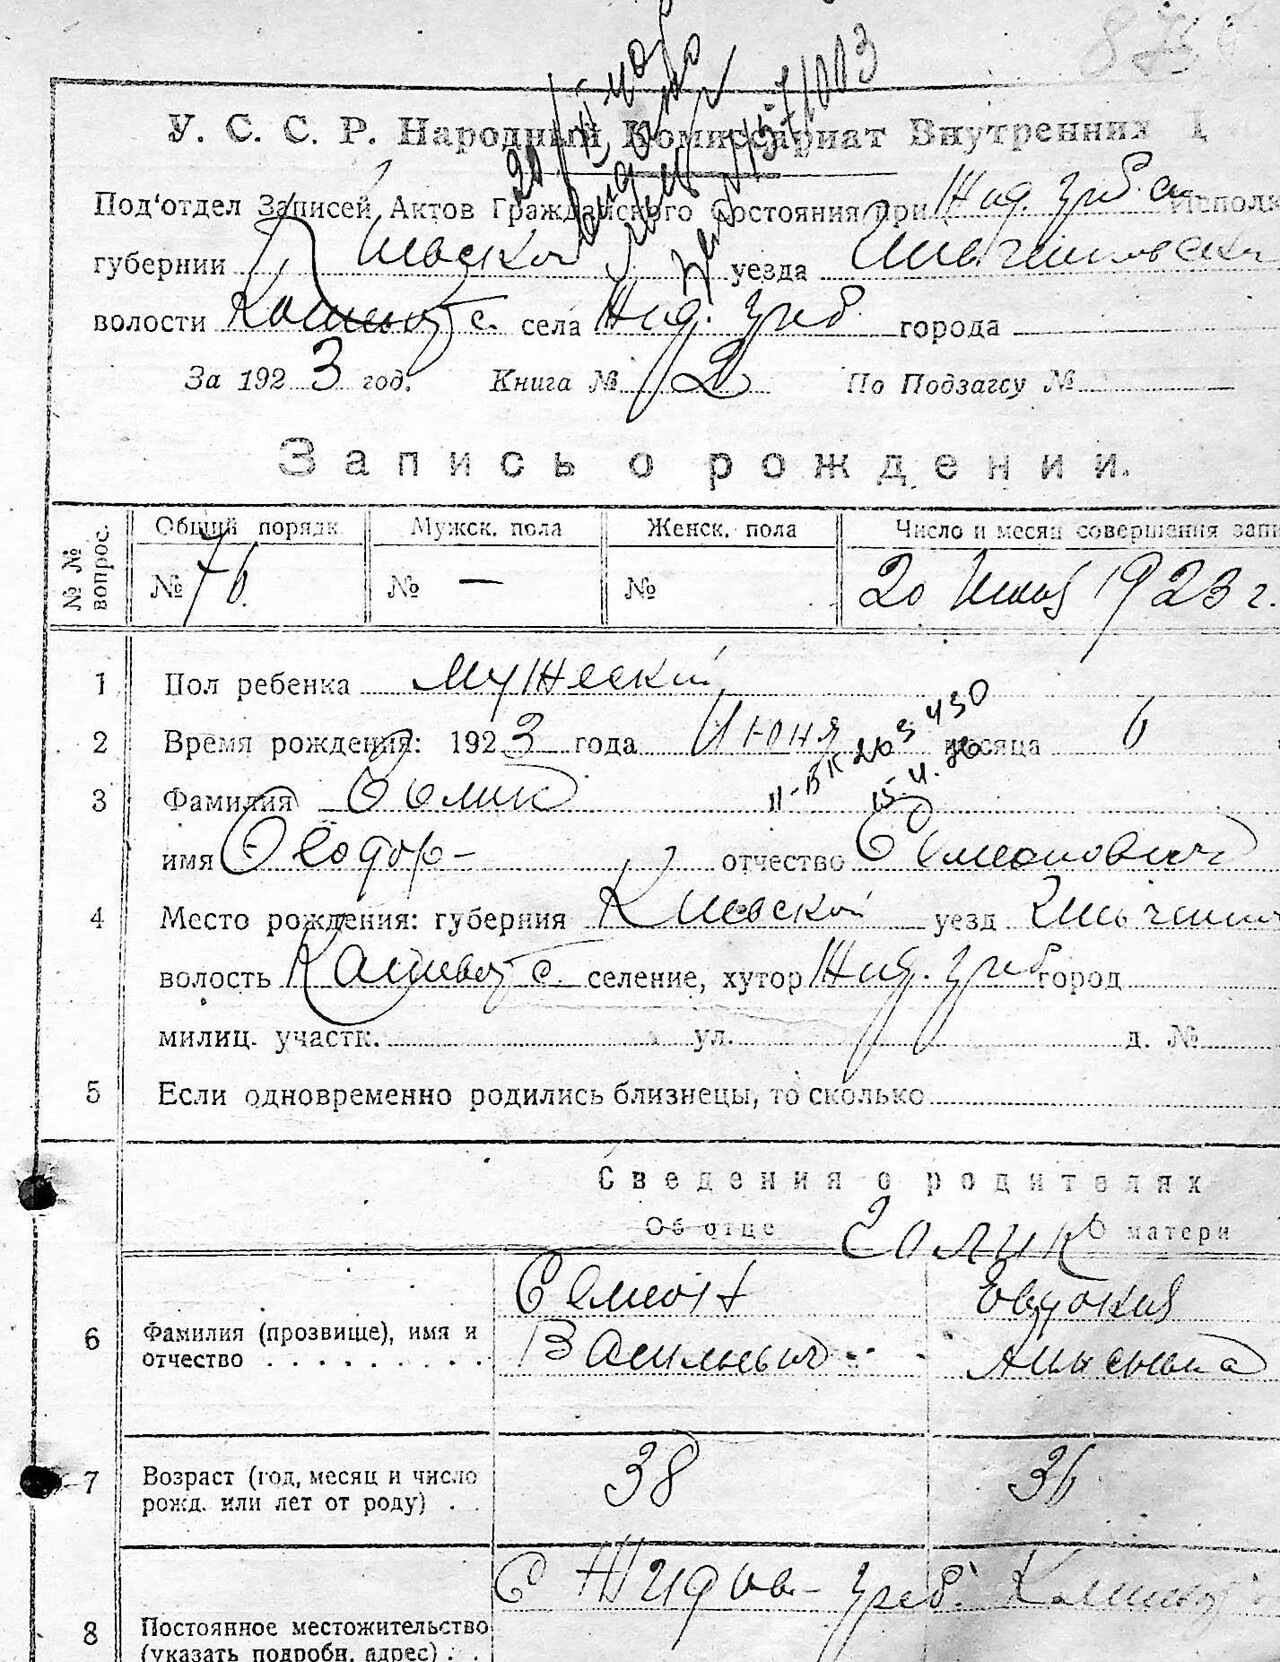 У. С. С. Р. Народный Комиссариат Внутренних
Под'отдел Записей Актов Гражданского Состояния при Жид. Греб. Исполк
губернии Киевской уезда
волости села Жид. Греб. города
За 1923 год. Книга № 2 По Подзагсу №
Запись о рождении.
№ № вопрос. Общий порядк. Мужск. пола Женск. пола Число и месяц совершения запи
№ 76. № — № 20 1923 г.
1 Пол ребенка мужеский
2 Время рождения: 1923 года Июня месяца 6
3 Фамилия
имя Феодор - отчество Семеонович
4 Место рождения: губерния Киевской уезд
волость селение, хутор Жид. Греб. город
милиц. участк. ул. д. №
5 Если одновременно родились близнецы, то сколько
Сведения о родителях
Об отце О матери
6 Фамилия (прозвище), имя и отчество Семеон Васильевич Евдокия
7 Возраст (год, месяц и число рожд. или лет от роду) 38 36
8 Постоянное местожительство (указать подробн. адрес) С Жидов- Греб.